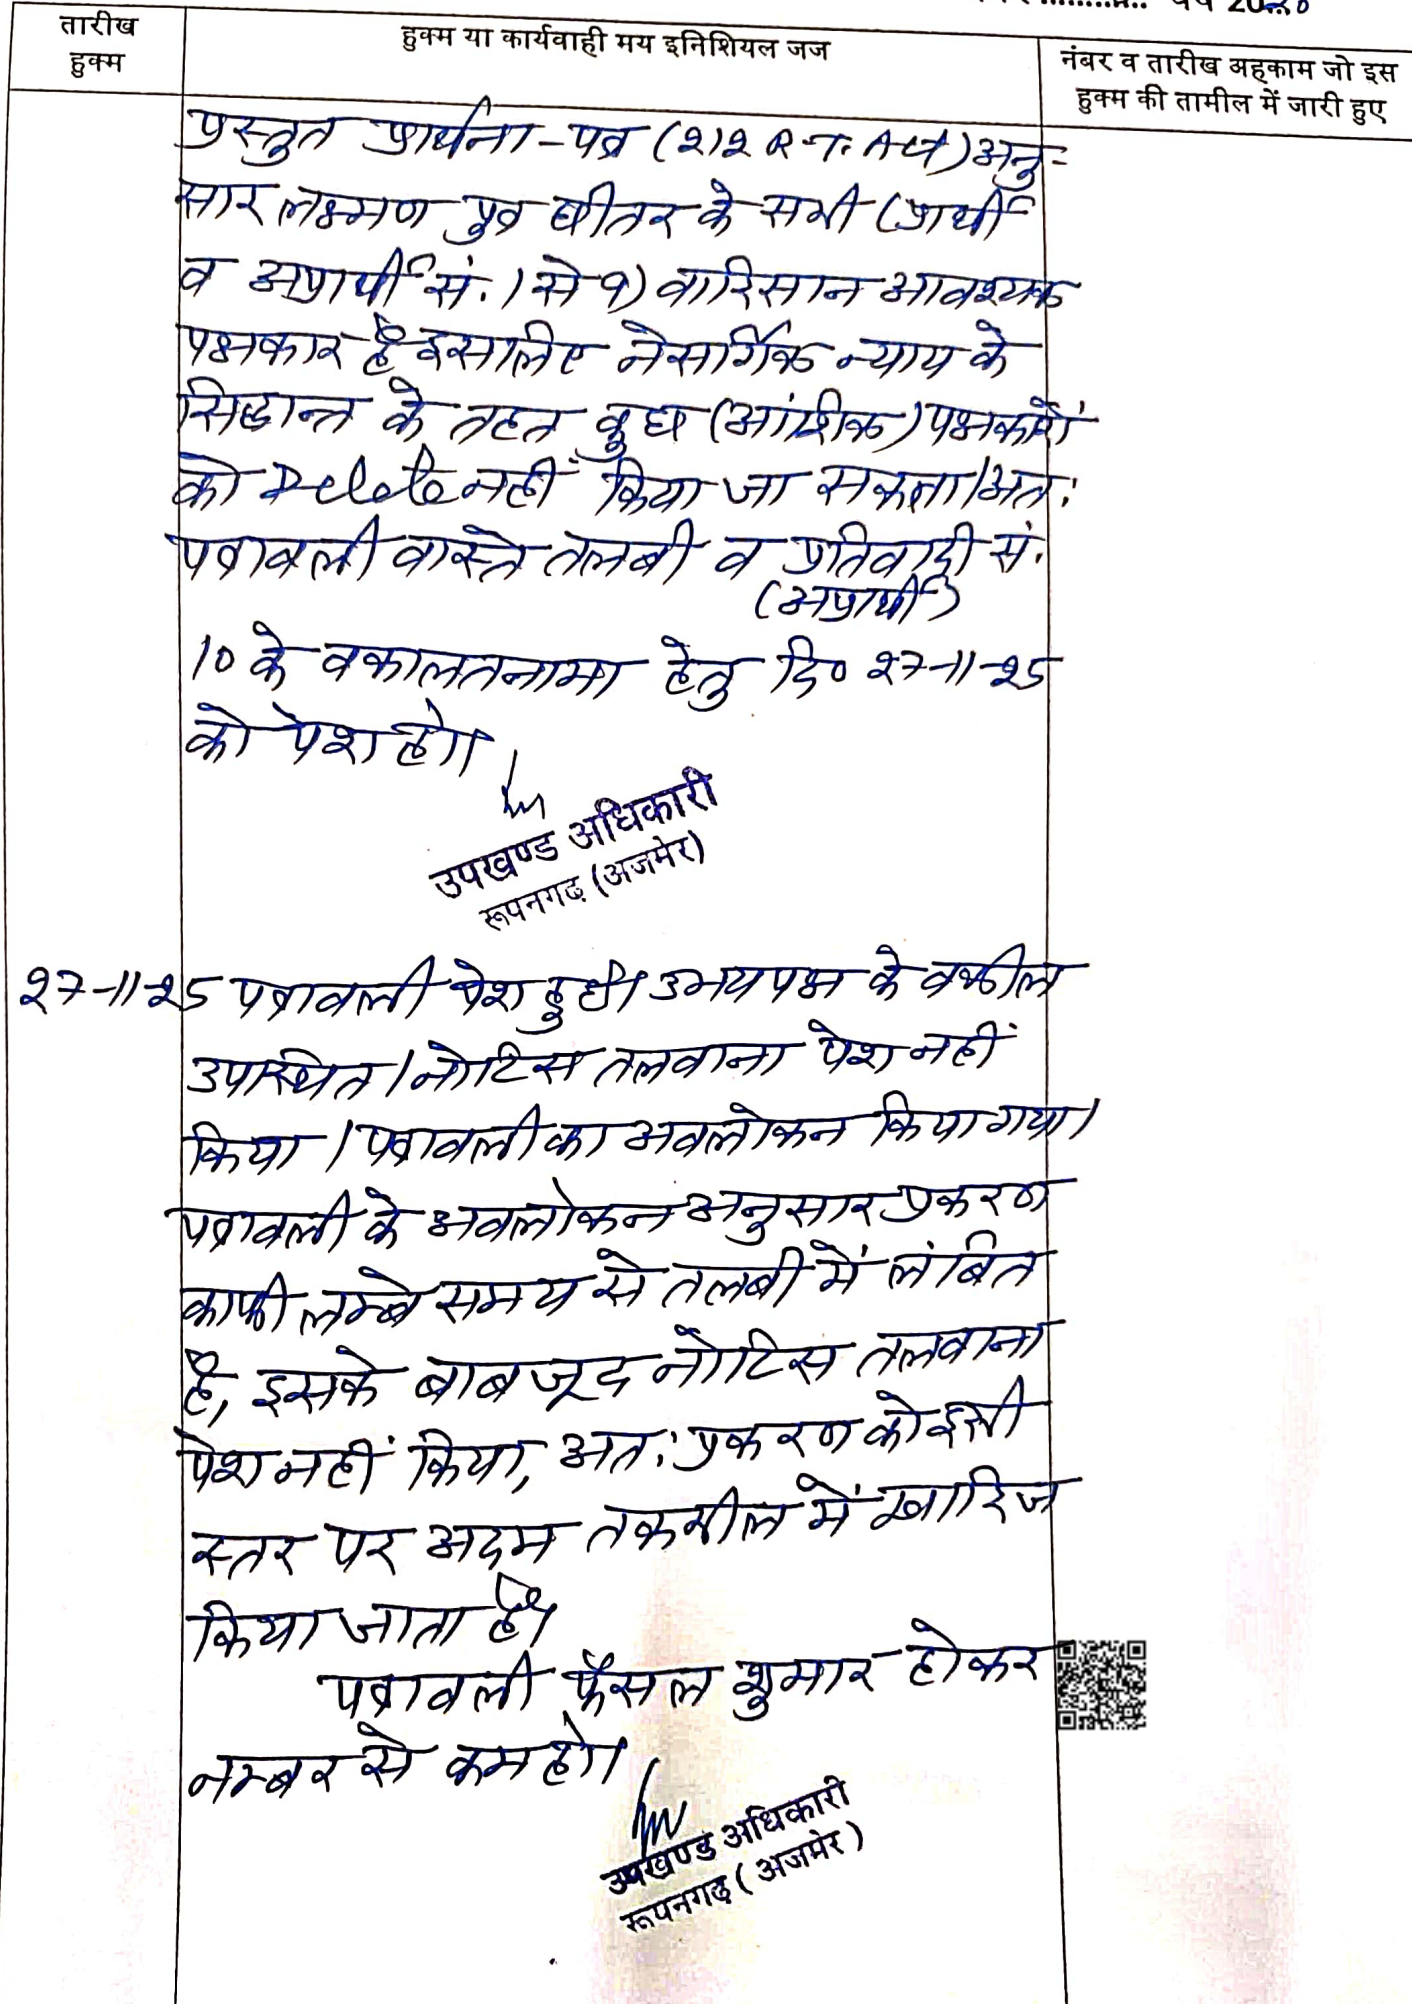 वर्ष 20...20
तारीख
हुक्म
हुक्म या कार्यवाही मय इनिशियल जज
नंबर व तारीख अहकाम जो इस
हुक्म की तामील में जारी हुए
प्रस्तुत प्रार्थना-पत्र (212 R.T. Act) अनु-
सार लक्ष्मण पुत्र छीतर के सभी (प्रार्थी
व अप्रार्थी सं. 1 से 9) वारिसान आवश्यक
पक्षकार है इसलिए नैसर्गिक न्याय के
सिद्धान्त के तहत कुछ (आंशिक) पक्षकारों
को Delete नहीं किया जा सकता। अतः
पत्रावली वास्ते तलबी व प्रतिवादी सं.
(अप्रार्थी)
10 के वकालतनामा हेतु दि० 27-11-25
को पेश हो।
उपखण्ड अधिकारी
रूपनगढ़ (अजमेर)
27-11-25 पत्रावली पेश हुई। उभयपक्ष के वकील
उपस्थित। नोटिस तलवाना पेश नहीं
किया। पत्रावली का अवलोकन किया गया।
पत्रावली के अवलोकन अनुसार प्रकरण
काफी लम्बे समय से तलबी में लंबित
है, इसके बाबजूद नोटिस तलवाना
पेश नहीं किया, अतः प्रकरण को इसी
स्तर पर अदम तकमील में खारिज
किया जाता है।
पत्रावली फैसल शुमार होकर
नम्बर से कम हो।
उपखण्ड अधिकारी
रूपनगढ़ (अजमेर)